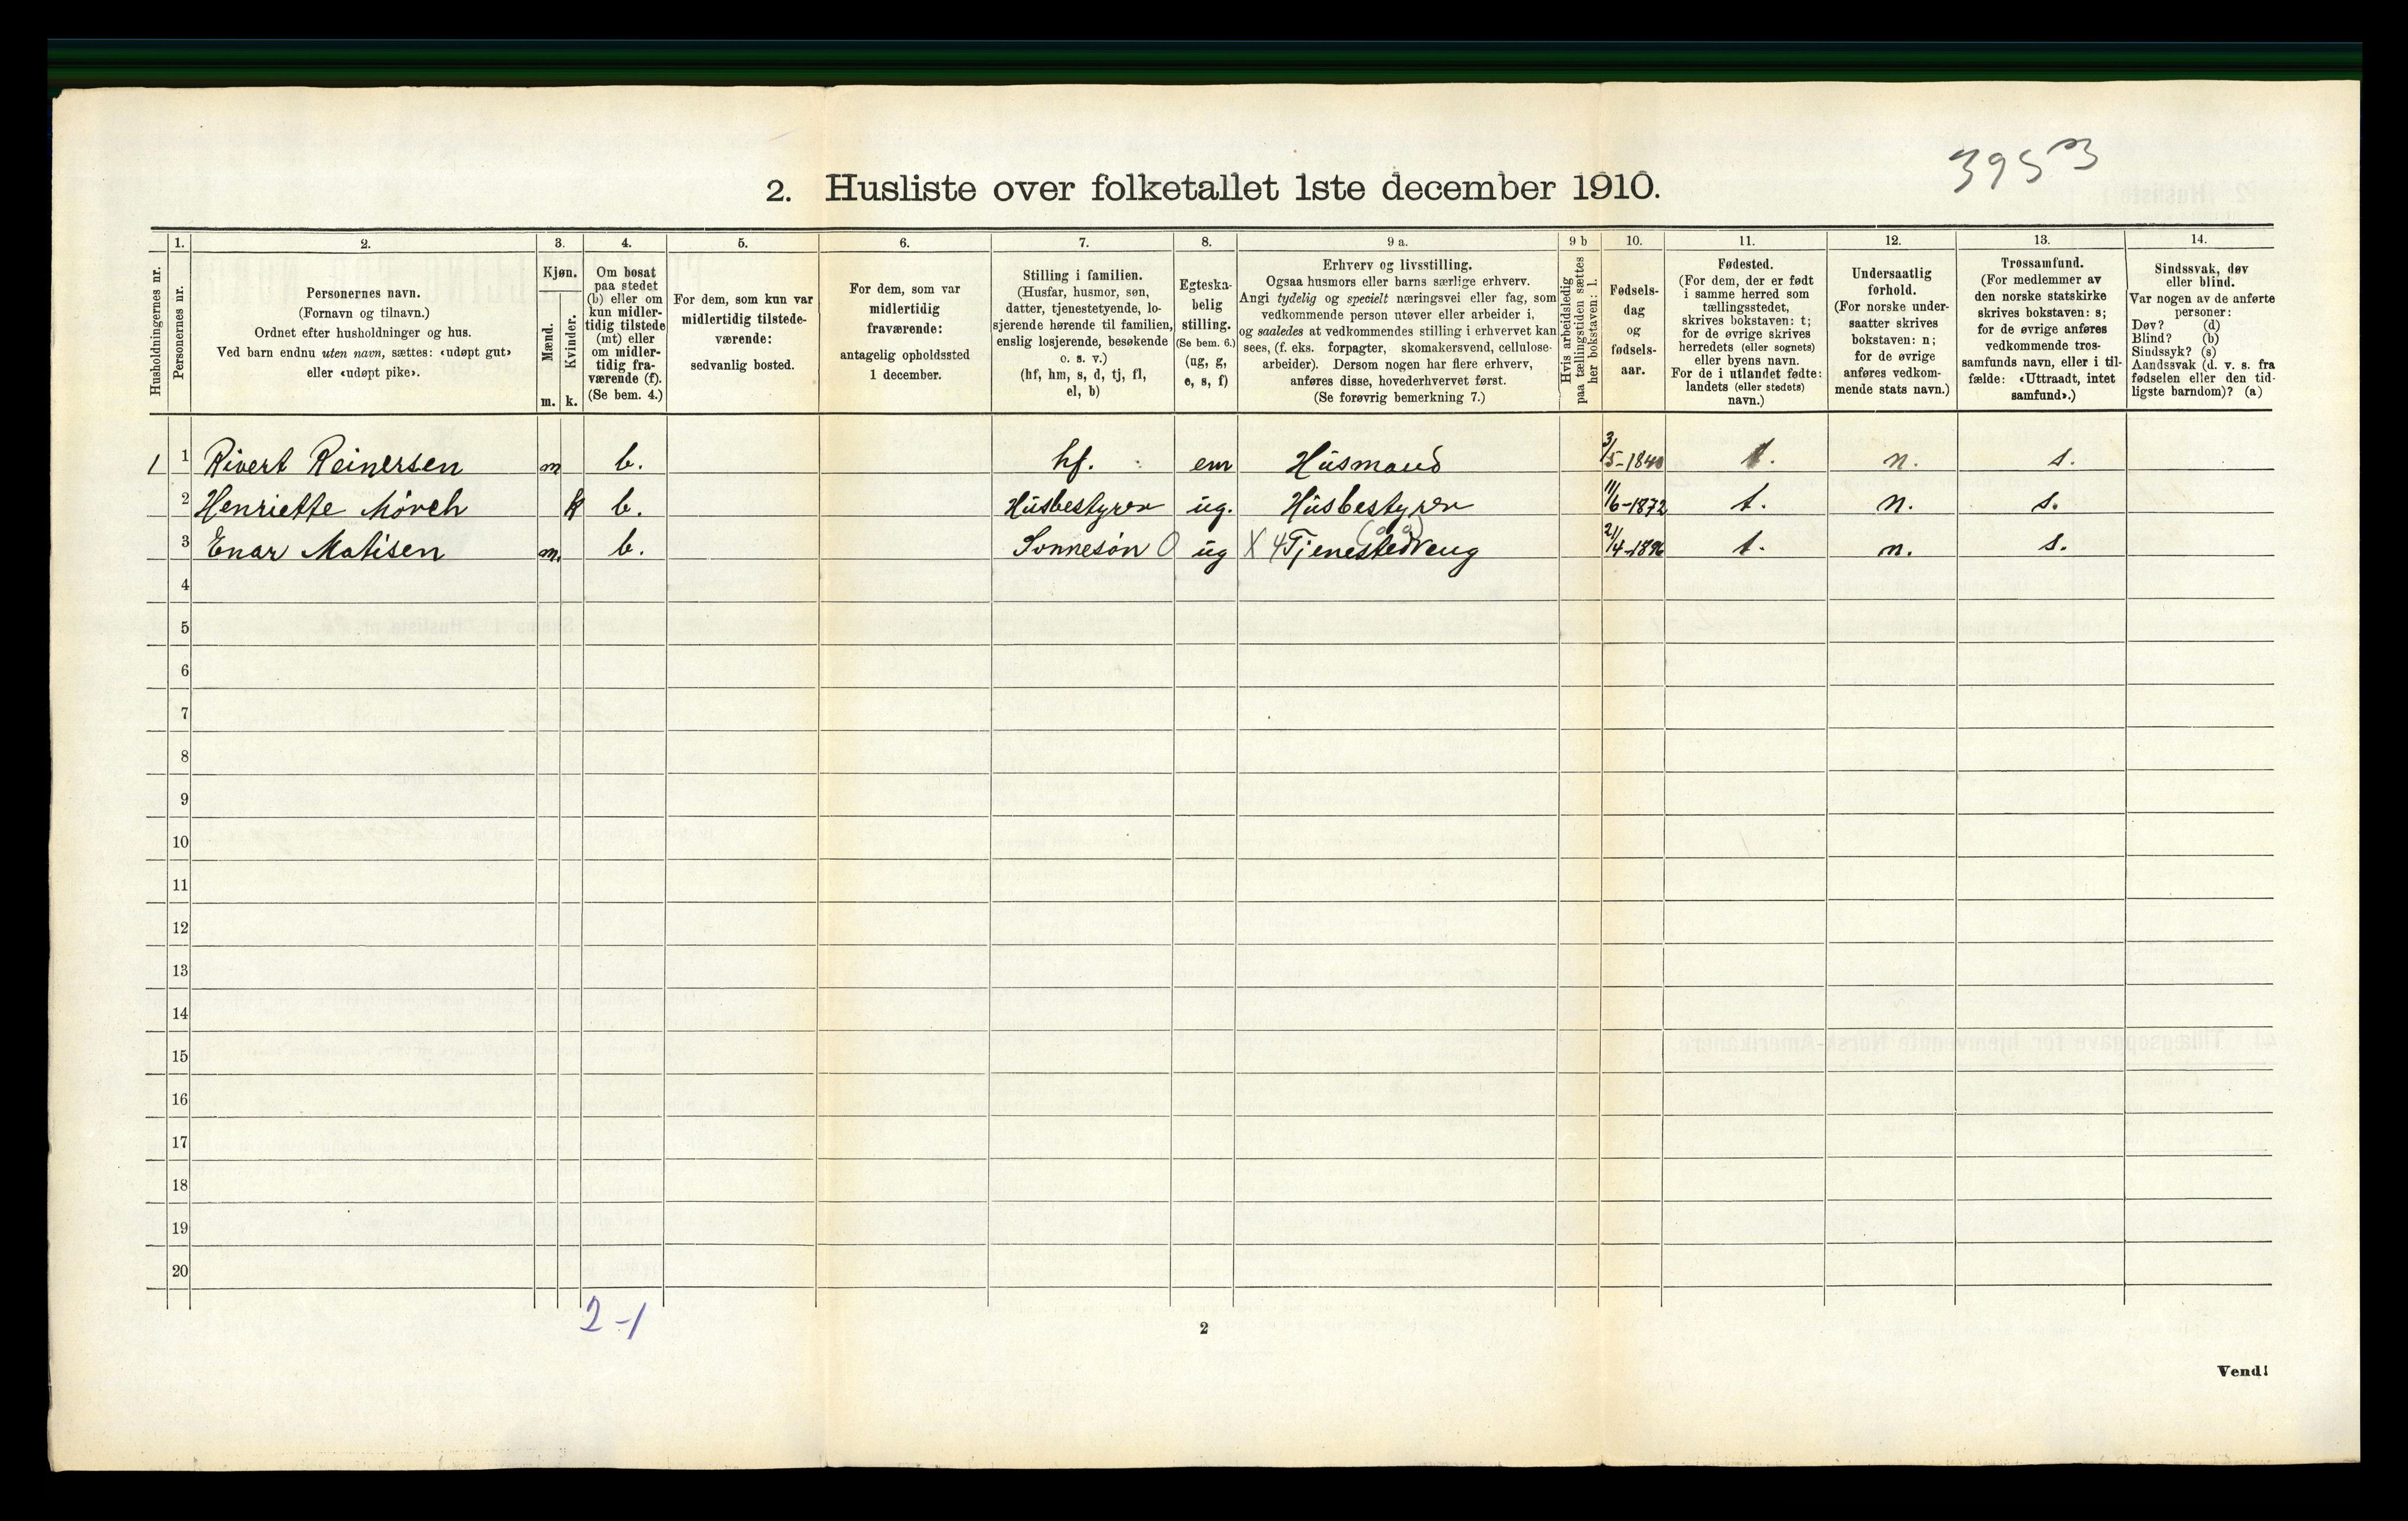 3953
2. Husliste over folketallet 1ste december 1910.
Husholdningernes nr.
1.
Personernes nr.
2.
Personernes navn.
(Fornavn og tilnavn.)
Ordnet efter husholdninger og hus.
Ved barn endnu uten navn, sættes: «udøpt gut»
eller «udøpt pike».
3.
Kjøn.
Mænd.
Kvinder.
m. k.
4.
Om bosat
paa stedet
(b) eller om
kun midler-
tidig tilstede
(mt) eller
om midler-
tidig fra-
værende (f).
(Se bem. 4.)
5.
For dem, som kun var
midlertidig tilstede-
værende:
sedvanlig bosted.
6.
For dem, som var
midlertidig
fraværende:
antagelig opholdssted
1 december.
7.
Stilling i familien.
(Husfar, husmor, søn,
datter, tjenestetyende, lo-
sjerende hørende til familien,
enslig losjerende, besøkende
o. s. v.)
(hf, hm, s, d, tj, fl,
el, b)
8.
Egteska-
belig
stilling.
(Se bem. 6.)
(ug, g,
e, s, f)
9 a.
Erhverv og livsstilling.
Ogsaa husmors eller barns særlige erhverv.
Angi tydelig og specielt næringsvei eller fag, som
vedkommende person utøver eller arbeider i,
og saaledes at vedkommendes stilling i erhvervet kan
sees, (f. eks. forpagter, skomakersvend, cellulose-
arbeider). Dersom nogen har flere erhverv,
anføres disse, hovederhvervet først.
(Se forøvrig bemerkning 7.)
9 b
Hvis arbeidsledig
paa tællingstiden sættes
her bokstaven: l.
10.
Fødsels-
dag
og
fødsels-
aar.
11.
Fødested.
(For dem, der er født
i samme herred som
tællingsstedet,
skrives bokstaven: t;
for de øvrige skrives
herredets (eller sognets)
eller byens navn.
For de i utlandet fødte:
landets (eller stedets)
navn.)
12.
Undersaatlig
forhold.
(For norske under-
saatter skrives
bokstaven: n;
for de øvrige
anføres vedkom-
mende stats navn.)
13.
Trossamfund.
(For medlemmer av
den norske statskirke
skrives bokstaven: s;
for de øvrige anføres
vedkommende tros-
samfunds navn, eller i til-
fælde: «Uttraadt, intet
samfund».)
14.
Sindssvak, døv
eller blind.
Var nogen av de anførte
personer:
Døv? (d)
Blind? (b)
Sindssyk? (s)
Aandssvak (d. v. s. fra
fødselen eller den tid-
ligste barndom)? (a)
1 1 Rivert Reinersen m b. hf. em Husmand 3/5-1840 t. n. s.
2 Henriette Mörch k b. Husbestyrer ug. Husbestyrer 11/6-1872 t. n. s.
3 Enar Matisen m. b. Sonnesön 0 ug X 4 Tjenestedreng 21/4-1896 t. n. s.
4
5
6
7
8
9
10
11
12
13
14
15
16
17
18
19
20
2-1
2
Vend!